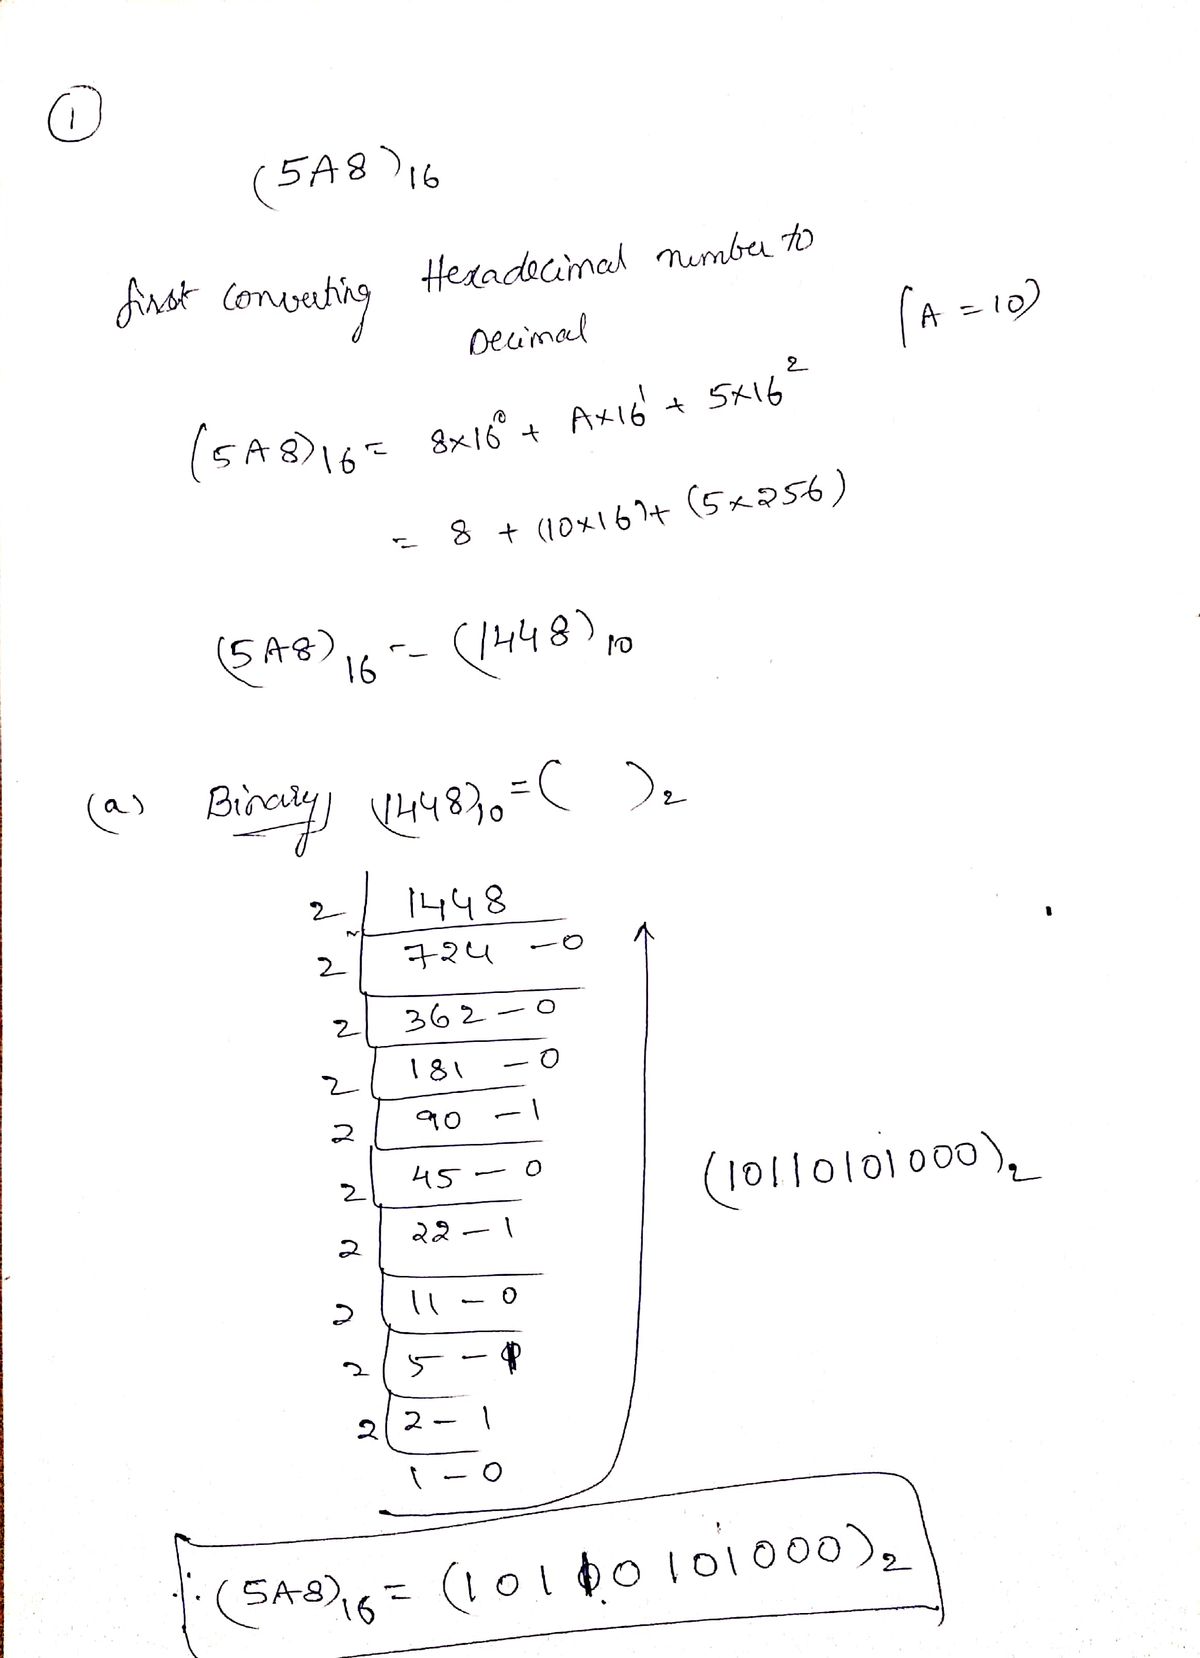 ①
(5A8)₁₆
first converting Hexadecimal number to
Decimal
(A = 10)
(5A8)₁₆ = 8×16⁰ + A×16¹ + 5×16²
= 8 + (10×16) + (5×256)
(5A8)₁₆ = (1448)₁₀
(a) Binary, (1448)₁₀ = ( )₂
2 1448
2 724 – 0
2 362 – 0
2 181 – 0
2 90 – 1
2 45 – 0
2 22 – 1
2 11 – 0
2 5 – 1
2 2 – 1
1 – 0
(10110101000)₂
∴ (5A8)₁₆ = (10110101000)₂